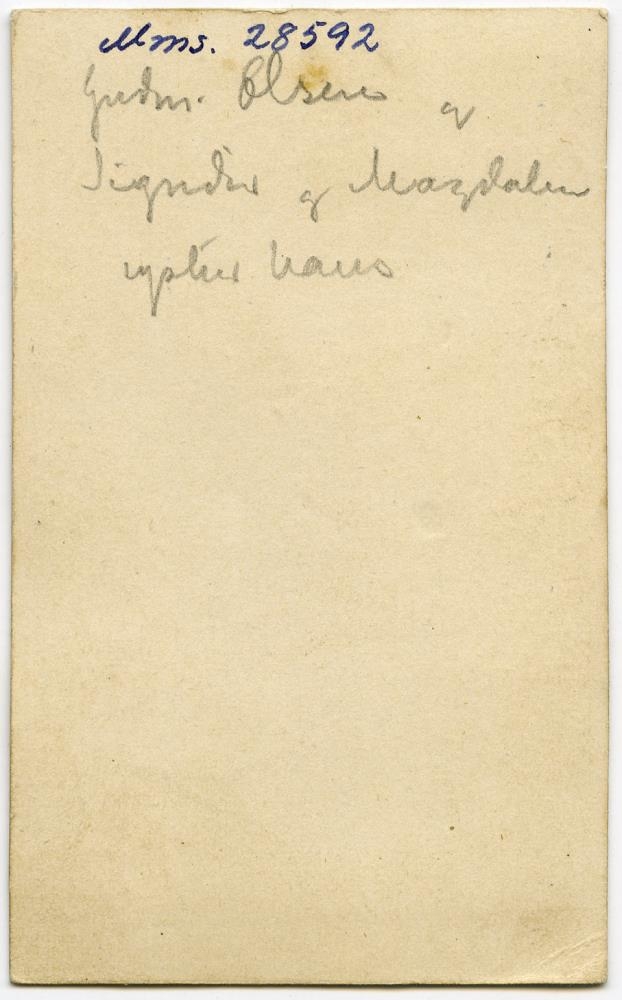 Mms. 28592
Guðm. Olsen og
Sigríður og Magdalena
systur hans